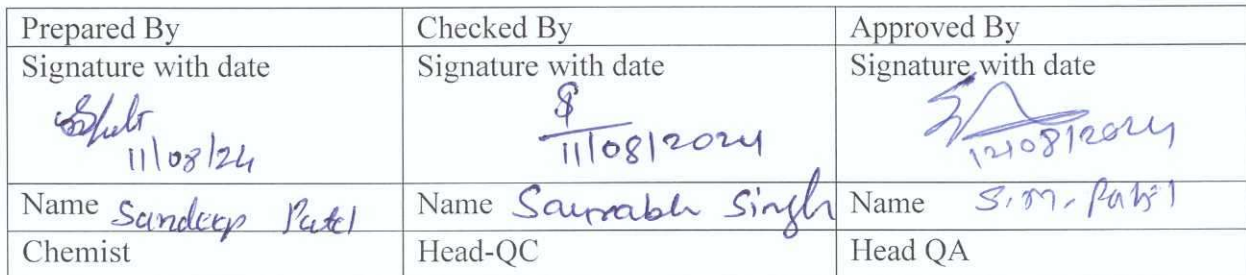 Prepared By Checked By Approved By
Signature with date Signature with date Signature with date
11/08/24 11/08/2024 12/08/2024
Name Sandeep Patel Name Saurabh Singh Name S.M. Patel
Chemist Head-QC Head QA